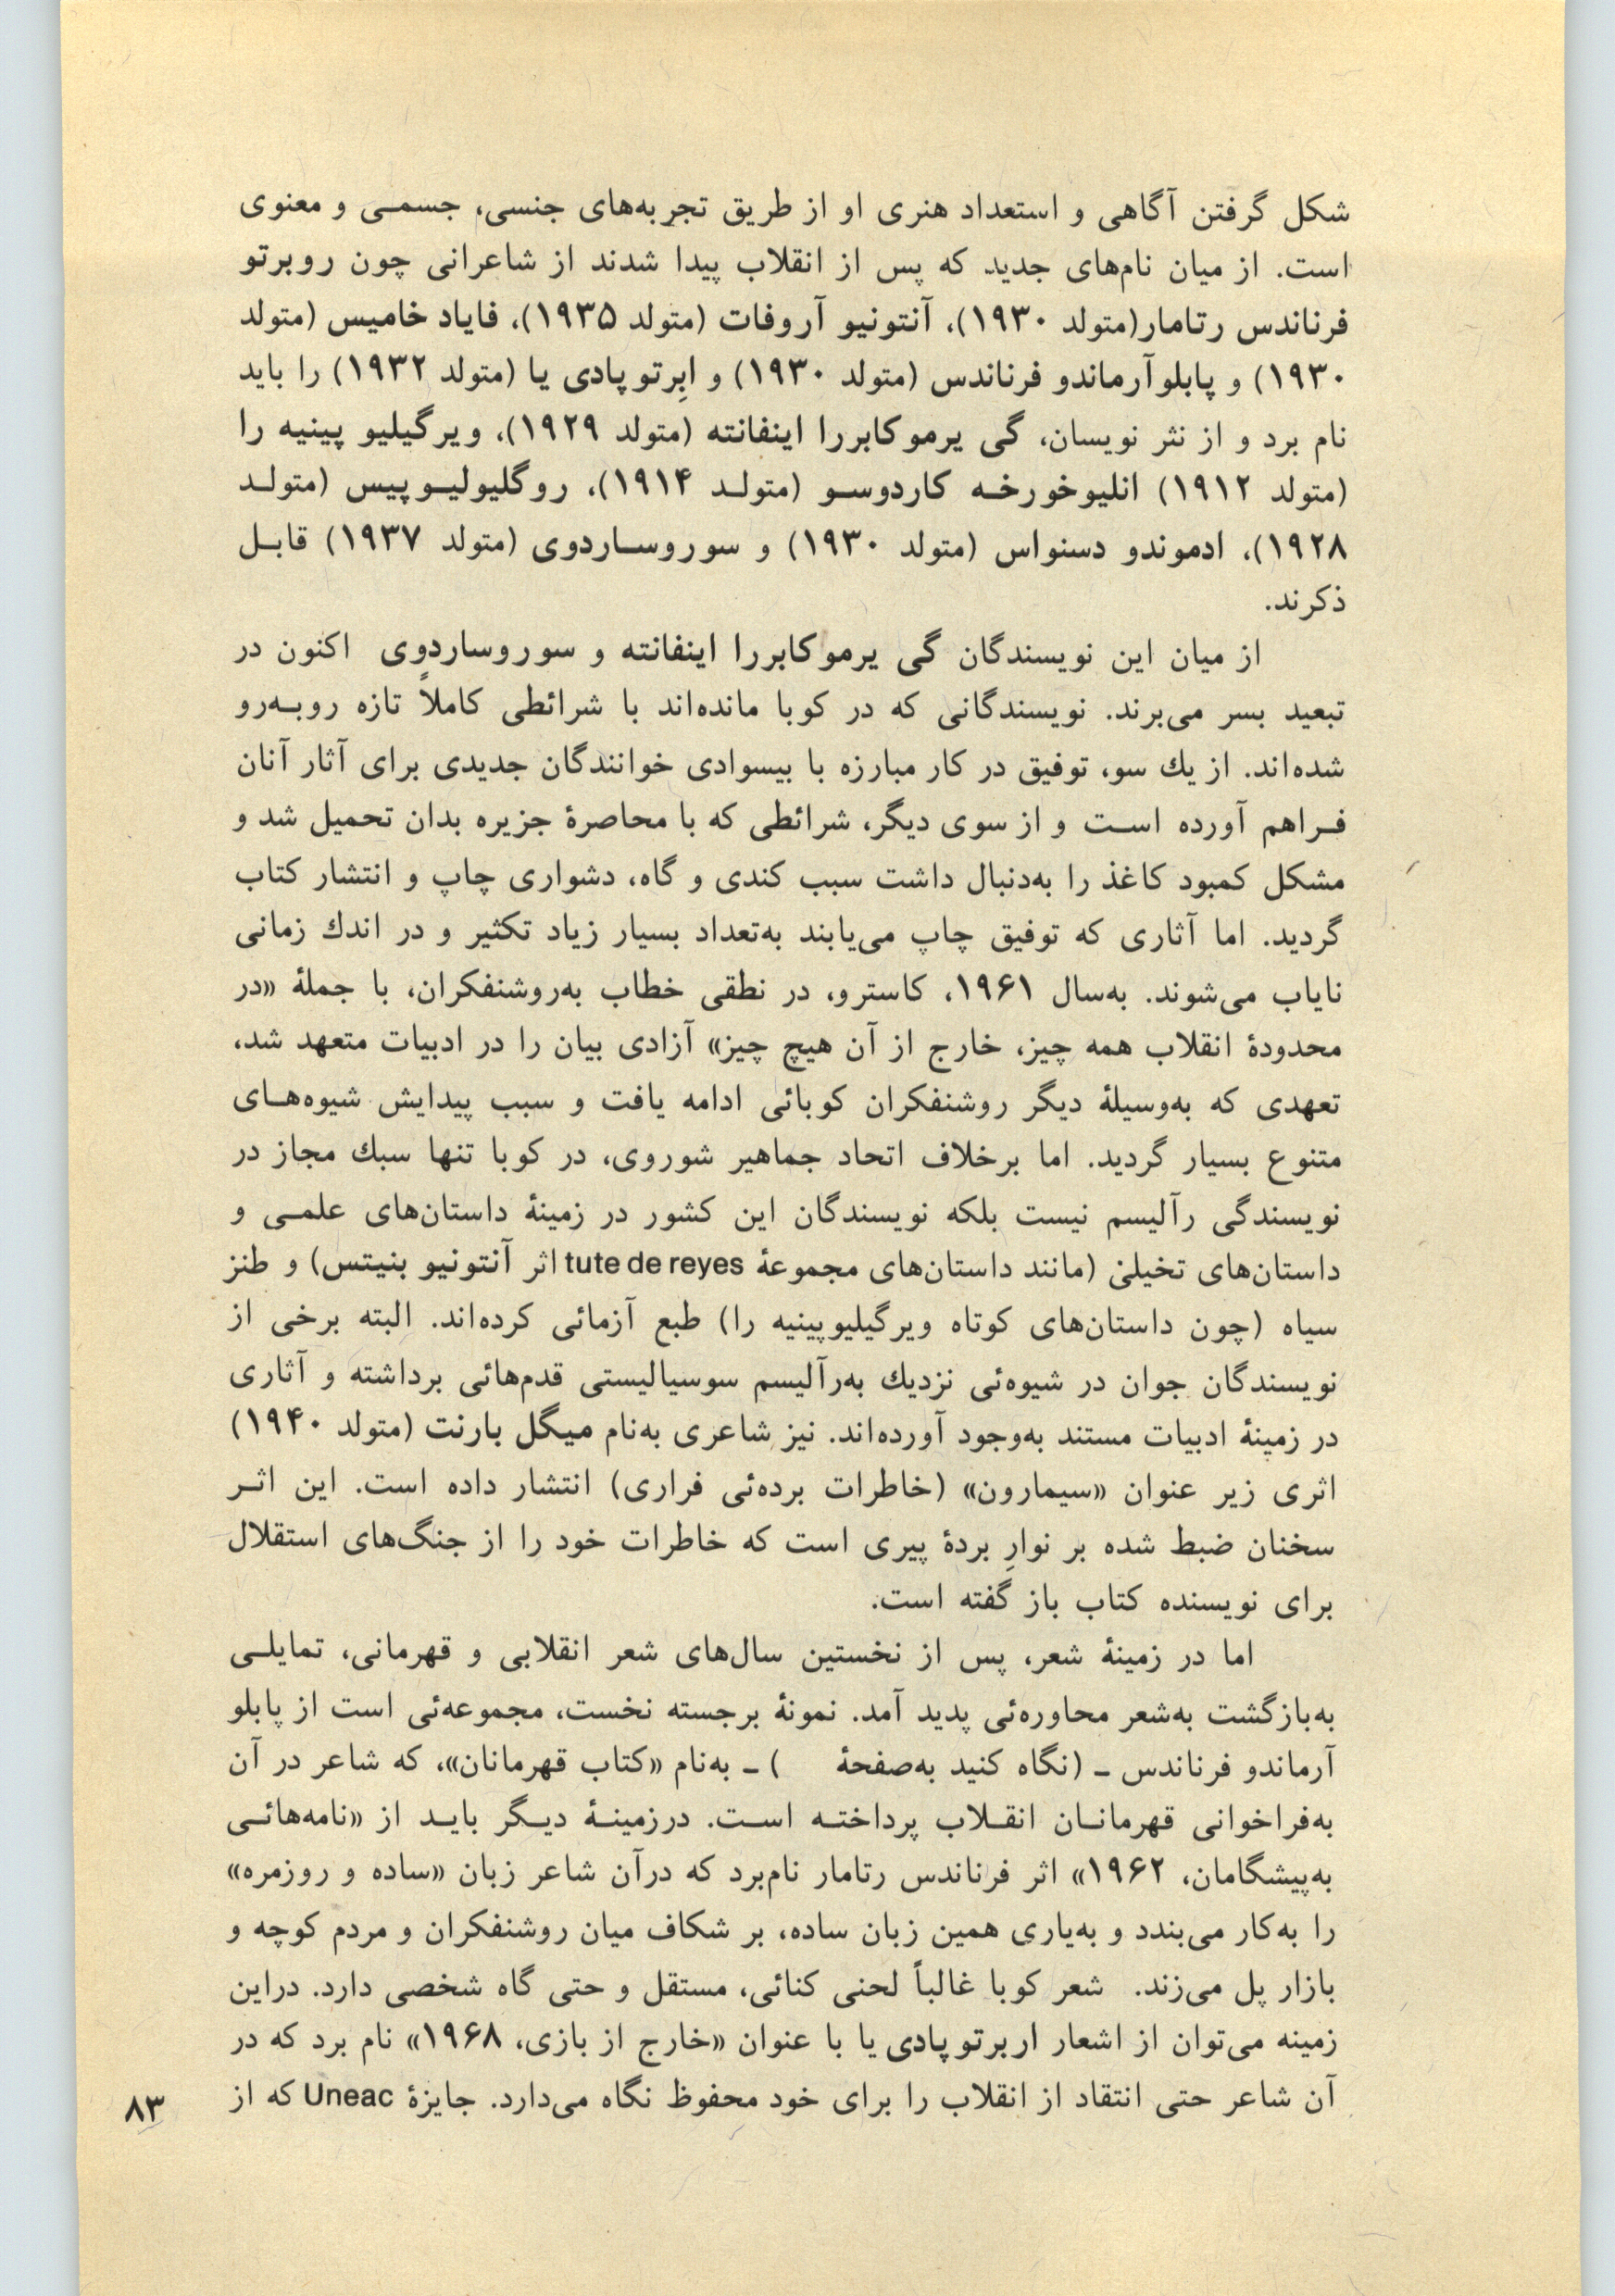 شکل گرفتن آگاهی و استعداد هنری او از طریق تجربه‌های جنسی، جسمـی و معنوی
است. از میان نام‌های جدید که پس از انقلاب پیدا شدند از شاعرانی چون روبرتو
فرناندس رتامار(متولد ۱۹۳۰)، آنتونیو آروفات (متولد ۱۹۳۵)، فایاد خامیس (متولد
۱۹۳۰) و پابلوآرماندو فرناندس (متولد ۱۹۳۰) و اِبرتو پادی یا (متولد ۱۹۳۲) را باید
نام برد و از نثر نویسان، گی یرموکابررا اینفانته (متولد ۱۹۲۹)، ویرگیلیو پینیه را
(متولد ۱۹۱۲) انلیوخورخـه کاردوسـو (متولـد ۱۹۱۴)، روگلیولیـوپیس (متولـد
۱۹۲۸)، ادموندو دسنواس (متولد ۱۹۳۰) و سوروسـاردوی (متولد ۱۹۳۷) قابـل
ذکرند.
از میان این نویسندگان گی یرموکابررا اینفانته و سوروساردوی اکنون در
تبعید بسر می‌برند. نویسندگانی که در کوبا مانده‌اند با شرائطی کاملاً تازه روبـه‌رو
شده‌اند. از یك سو، توفیق در کار مبارزه با بیسوادی خوانندگان جدیدی برای آثار آنان
فـراهم آورده اسـت و از سوی دیگر، شرائطی که با محاصرۀ جزیره بدان تحمیل شد و
مشکل کمبود کاغذ را به‌دنبال داشت سبب کندی و گاه، دشواری چاپ و انتشار کتاب
گردید. اما آثاری که توفیق چاپ می‌یابند به‌تعداد بسیار زیاد تکثیر و در اندك زمانی
نایاب می‌شوند. به‌سال ۱۹۶۱، کاسترو، در نطقی خطاب به‌روشنفکران، با جملۀ «در
محدودۀ انقلاب همه چیز، خارج از آن هیچ چیز» آزادی بیان را در ادبیات متعهد شد،
تعهدی که به‌وسیلۀ دیگر روشنفکران کوبائی ادامه یافت و سبب پیدایش شیوه‌هـای
متنوع بسیار گردید. اما برخلاف اتحاد جماهیر شوروی، در کوبا تنها سبك مجاز در
نویسندگی رآلیسم نیست بلکه نویسندگان این کشور در زمینۀ داستان‌های علمـی و
داستان‌های تخیلی (مانند داستان‌های مجموعۀ tute de reyes اثر آنتونیو بنیتس) و طنز
سیاه (چون داستان‌های کوتاه ویرگیلیوپینیه را) طبع آزمائی کرده‌اند. البته برخی از
نویسندگان جوان در شیوه‌ئی نزدیك به‌رآلیسم سوسیالیستی قدم‌هائی برداشته و آثاری
در زمینۀ ادبیات مستند به‌وجود آورده‌اند. نیز شاعری به‌نام میگل بارنت (متولد ۱۹۴۰)
اثری زیر عنوان «سیمارون» (خاطرات برده‌ئی فراری) انتشار داده است. این اثـر
سخنان ضبط شده بر نوارِ بردۀ پیری است که خاطرات خود را از جنگ‌های استقلال
برای نویسنده کتاب باز گفته است.
اما در زمینۀ شعر، پس از نخستین سال‌های شعر انقلابی و قهرمانی، تمایلـی
به‌بازگشت به‌شعر محاوره‌ئی پدید آمد. نمونۀ برجسته نخست، مجموعه‌ئی است از پابلو
آرماندو فرناندس ـ (نگاه کنید به‌صفحۀ     ) ـ به‌نام «کتاب قهرمانان»، که شاعر در آن
به‌فراخوانی قهرمانـان انقـلاب پرداختـه اسـت. درزمینـۀ دیـگر بایـد از «نامه‌هائـی
به‌پیشگامان، ۱۹۶۲» اثر فرناندس رتامار نام‌برد که درآن شاعر زبان «ساده و روزمره»
را به‌کار می‌بندد و به‌یاری همین زبان ساده، بر شکاف میان روشنفکران و مردم کوچه و
بازار پل می‌زند. شعر کوبا غالباً لحنی کنائی، مستقل و حتی گاه شخصی دارد. دراین
زمینه می‌توان از اشعار اربرتو پادی یا با عنوان «خارج از بازی، ۱۹۶۸» نام برد که در
آن شاعر حتی انتقاد از انقلاب را برای خود محفوظ نگاه می‌دارد. جایزۀ Uneac که از
۸۳